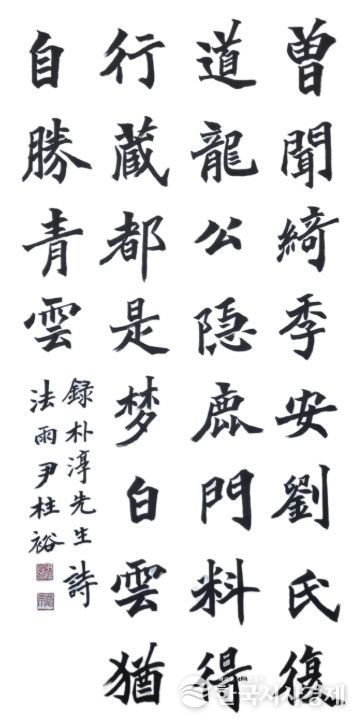 曾聞綺季安劉氏復
道龍公隠鹿門料得
行蔵都是梦白雲猶
自勝青雲
録朴淳先生詩
法雨尹柱裕
한국시사경제